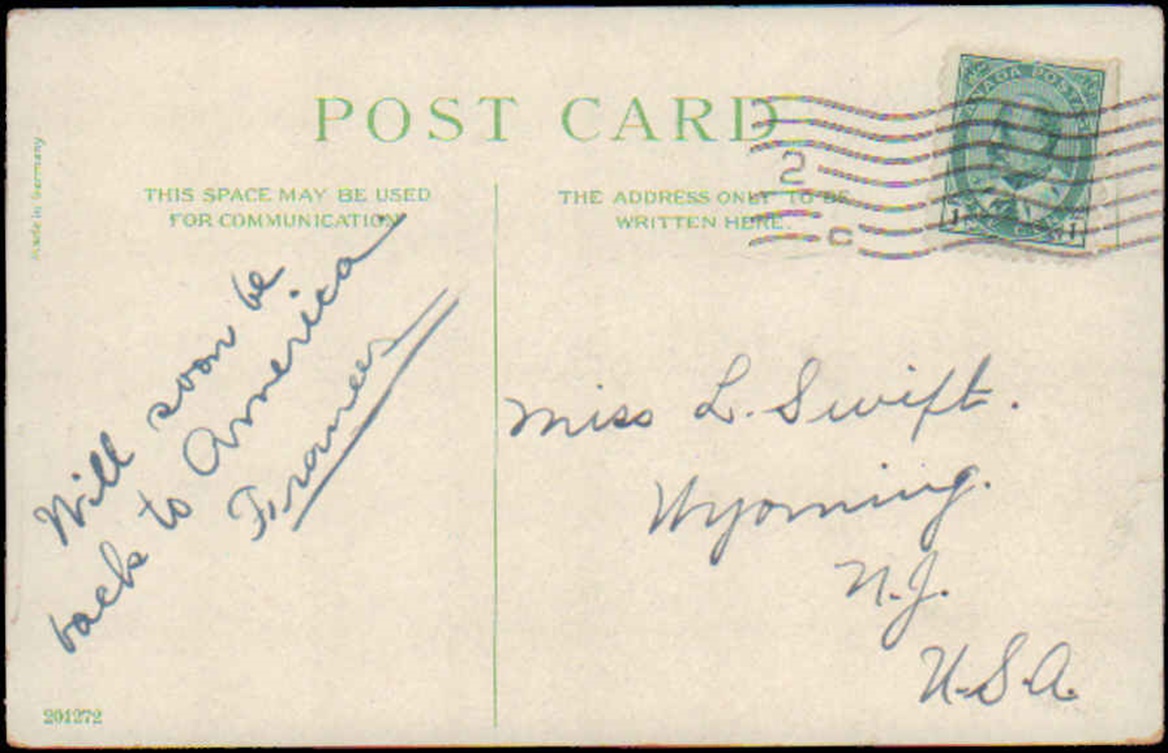 POST CARD
Made in Germany
THIS SPACE MAY BE USED
FOR COMMUNICATION
THE ADDRESS ONLY TO BE
WRITTEN HERE.
CANADA POSTAGE
1 1
2
C
Will soon be
back to America
Frances
Miss L. Swift.
Wyoming.
N.J.
U.S.A.
201272